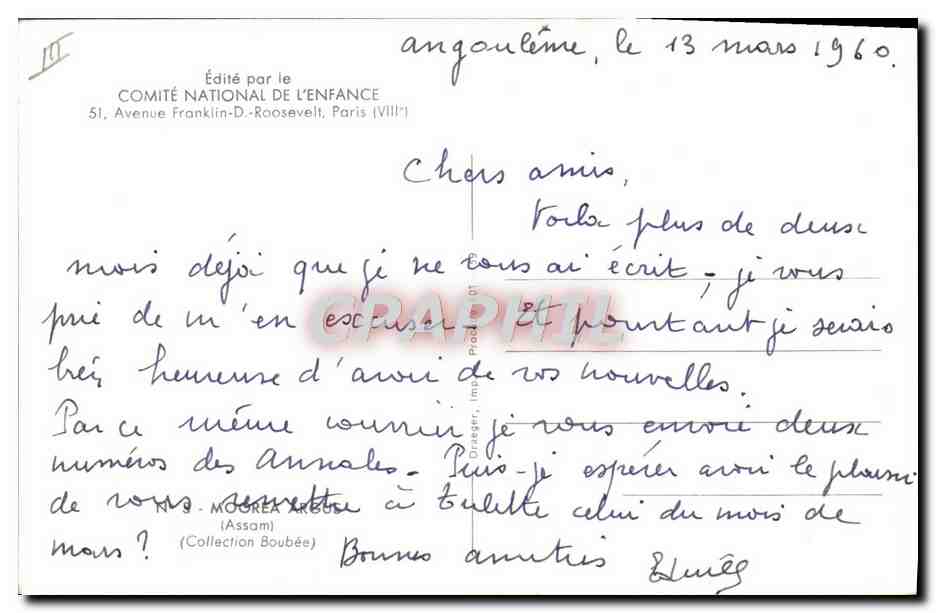 III
angoulême, le 13 mars 1960.
Édité par le
COMITÉ NATIONAL DE L'ENFANCE
51, Avenue Franklin-D.-Roosevelt, Paris (VIIIe)
Chers amis,
Voilà plus de deux
mois déjà que je ne vous ai écrit, je vous
prie de m'en excuser. Et pourtant je serais
bien heureuse d'avoir de vos nouvelles.
Par ce même courrier je vous envoie deux
numéros des Annales. Puis-je espérer avoir le plaisir
de vous remettre à Tulette celui du mois de
mars ?
Bonnes amitiés
N° 9 - MOOREA ARGUS
(Assam)
(Collection Boubée)
Draeger, Imp.
CPAPHIL